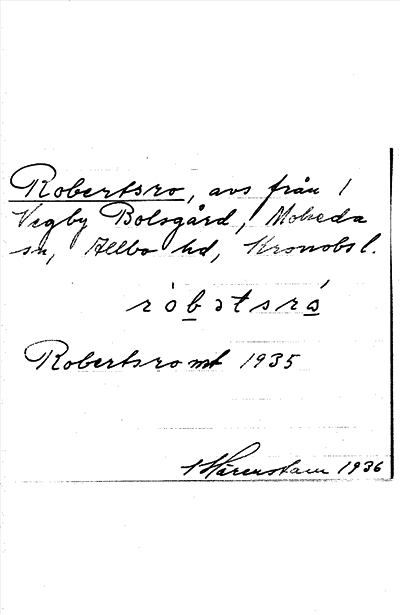 Robertsro, avs från 1
Vegby Bolsgård, Moheda
sn, Allbo hd, Kronobs l.
ròbətsrá
Robertsro mt 1935
Härenstam 1936